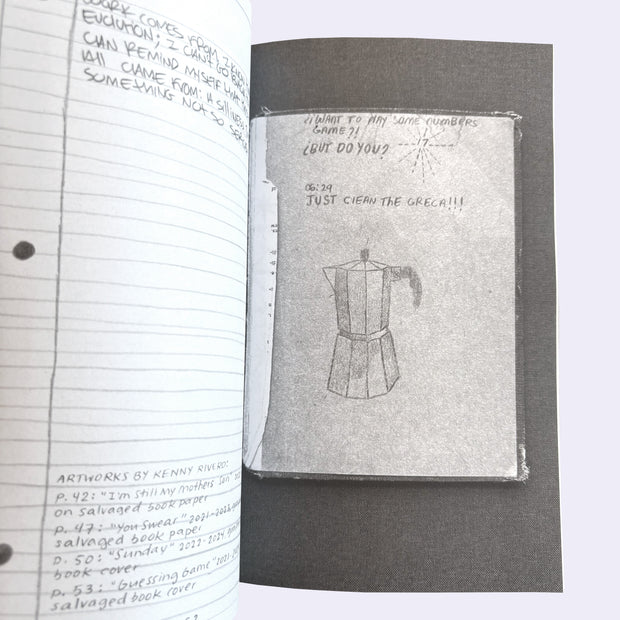 WORK COMES FROM
EVOLUTION; I CAN'T GO
CAN REMIND MYSELF
All CAME FROM: it still
SOMETHING NOT SO
ARTWORKS BY KENNY RIVERO:
P. 42: "I'm Still My Mothers Son"
on salvaged book paper
P. 47: "You Swear" 2021-2023
salvaged book paper
P. 50: "Sunday" 2022-2024
book cover
p. 53: "Guessing Game" 2021-
salvaged book cover
¿I WANT TO PLAY SOME NUMBERS
GAME?!
¿BUT DO YOU?
17
06:29
JUST CLEAN THE GRECA!!!